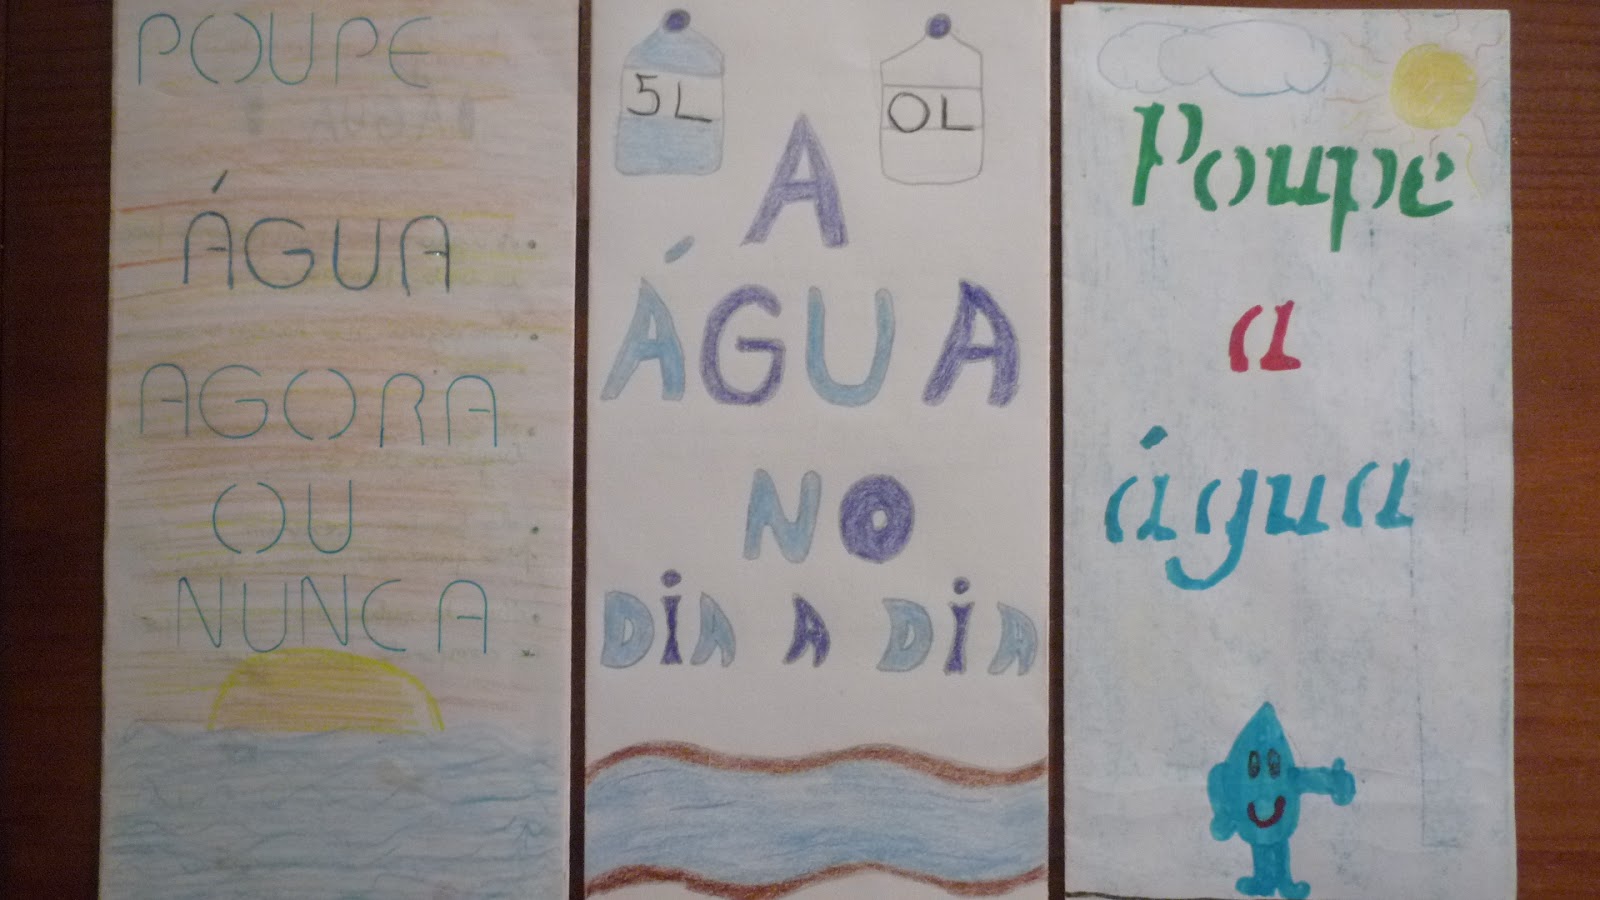 POUPE
ÁGUA
AGORA
OU
NUNCA
5L
0L
A
ÁGUA
NO
DIA A DIA
Poupe
a
água